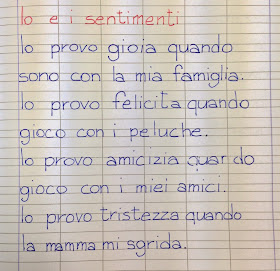 Io e i sentimenti
Io provo gioia quando
sono con la mia famiglia.
Io provo felicita quando
gioco con i peluche.
Io provo amicizia quando
gioco con i miei amici.
Io provo tristezza quando
la mamma mi sgrida.